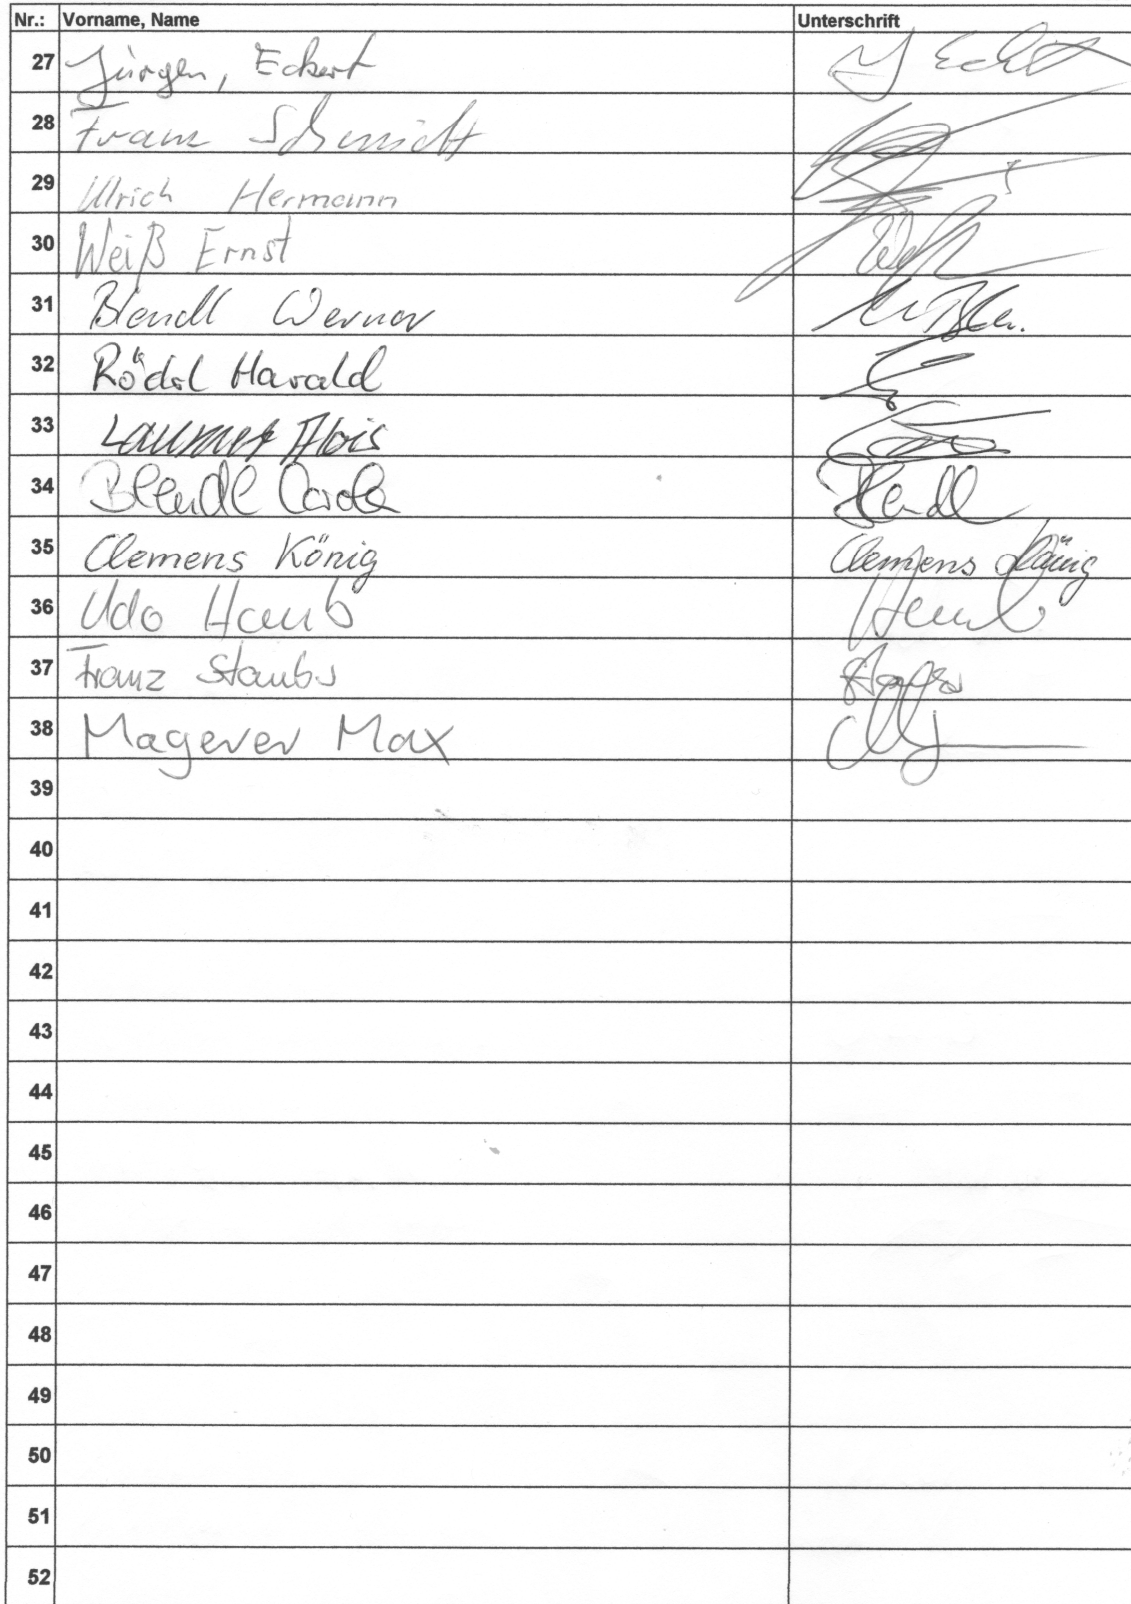 Nr.: Vorname, Name Unterschrift
27 Jürgen, Eckert
28 Franz Schmidt
29 Ulrich Hermann
30 Weiß Ernst
31 Blendl Werner
32 Rödel Harald
33 Laumer Alois
34 Blendl Carola Blendl
35 Clemens König Clemens König
36 Udo Haub
37 Franz
38 Magerer Max
39
40
41
42
43
44
45
46
47
48
49
50
51
52